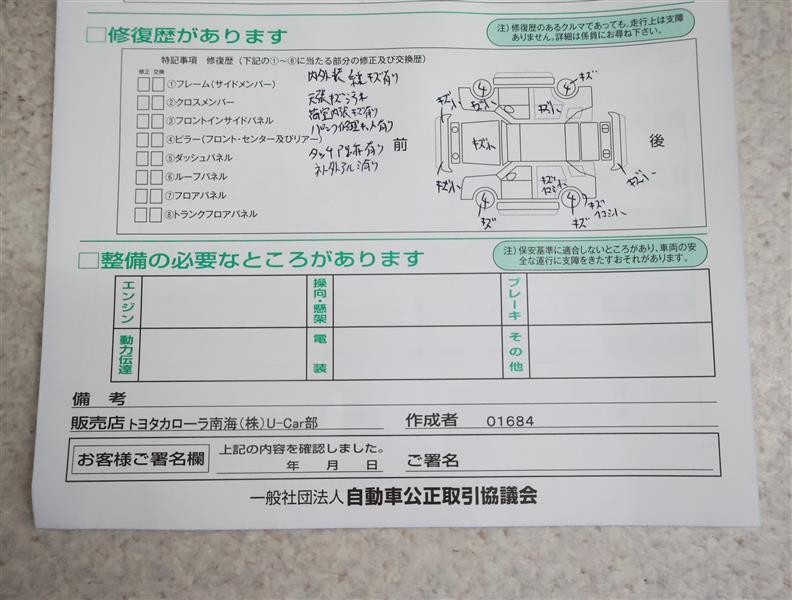 □修復歴があります
注）修復歴のあるクルマであっても、走行上は支障
ありません。詳細は係員にお尋ね下さい。
特記事項　修復歴（下記の①〜⑧に当たる部分の修正及び交換歴）
修正 交換
①フレーム（サイドメンバー）
②クロスメンバー
③フロントインサイドパネル
④ピラー（フロント・センター及びリアー）
⑤ダッシュパネル
⑥ルーフパネル
⑦フロアパネル
⑧トランクフロアパネル
内外装 キズ有り
天張キズ汚れ
荷室内張キズ有り
パンク修理キット有り
有り
有り
前
後
4
4
キズ
キズ
4
4
キズ
キズ
□整備の必要なところがあります
注）保安基準に適合しないところがあり、車両の安
全な運行に支障をきたすおそれがあります。
エンジン
操向・懸架
ブレーキ
動力伝達
電装
その他
備考
販売店 トヨタカローラ南海（株）U-Car部
作成者 01684
お客様ご署名欄
上記の内容を確認しました。
年　月　日
ご署名
一般社団法人 自動車公正取引協議会